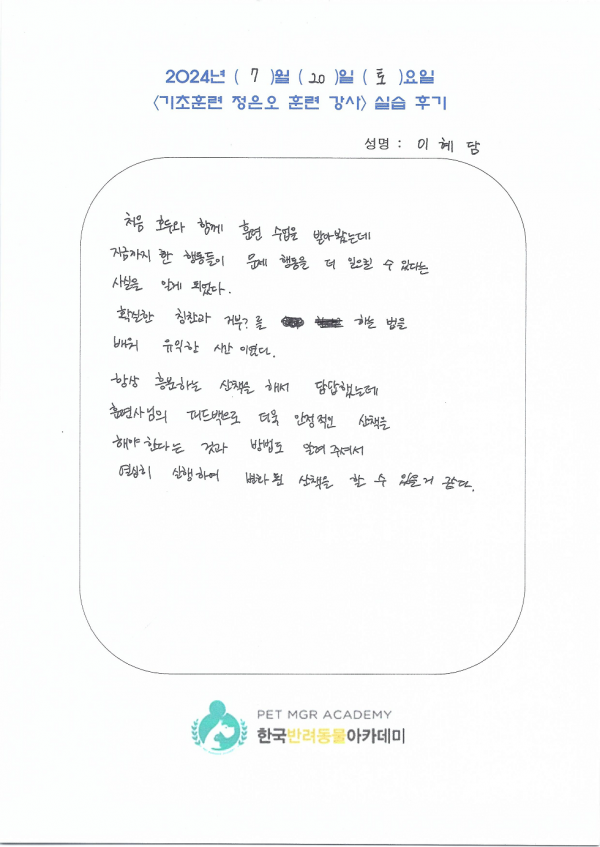 2024년 ( 7 )월 ( 20 )일 ( 토 )요일
<기초훈련 정은오 훈련 강사> 실습 후기
성명 : 이 혜 담
처음 호두와 함께 훈련 수업을 받아봤는데
지금까지 한 행동들이 문제 행동을 더 일으킬 수 있다는
사실을 알게 되었다.
확실한 칭찬과 거부? 를 하는 법을
배워 유익한 시간 이였다.
항상 흥분하는 산책을 해서 답답했는데
훈련사님의 피드백으로 더욱 안정적인 산책을
해야 한다는 것과 방법도 알려 주셔서
열심히 실행하여 산책을 할 수 있을거 같다.
PET MGR ACADEMY
한국반려동물아카데미